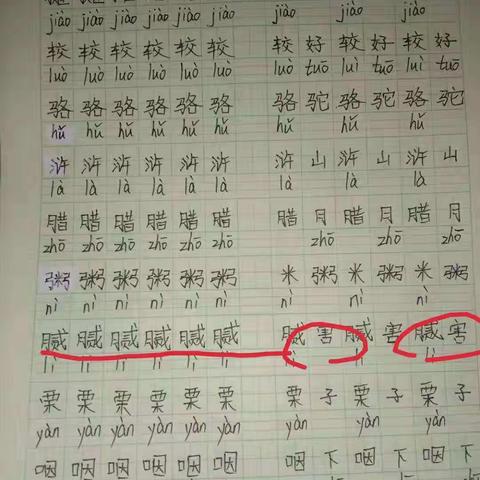 jiào jiào jiào jiào jiào jiào jiào jiào jiào
较 较 较 较 较 较 较 好 较 好 较 好
luò luò luò luò luò luò luò tuō luì tuō luì tuō
骆 骆 骆 骆 骆 骆 骆 驼 骆 驼 骆 驼
hǔ hǔ hǔ hǔ hǔ hǔ hǔ hǔ hǔ
浒 浒 浒 浒 浒 浒 浒 山 浒 山 浒 山
là là là là là là là là là
腊 腊 腊 腊 腊 腊 腊 月 腊 月 腊 月
zhō zhō zhō zhō zhō zhō zhō zhō zhō
粥 粥 粥 粥 粥 粥 米 粥 米 粥 米 粥
nì nì nì nì nì nì nì nì nì
腻 腻 腻 腻 腻 腻 腻 害 腻 害 腻 害
lì lì lì lì lì lì lì lì lì
栗 栗 栗 栗 栗 栗 栗 子 栗 子 栗 子
yàn yàn yàn yàn yàn yàn yàn yàn yàn
咽 咽 咽 咽 咽 咽 咽 下 咽 下 咽 下